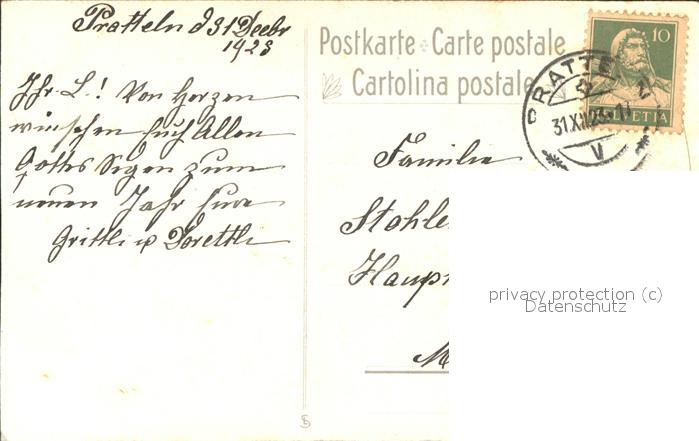 Pratteln d 31 Decbr
1923
Ihr L.! Von Herzen
wünschen Euch Allen
Gottes Segen zum
neuen Jahr Eure
Grittli u Dorettli
Postkarte Carte postale
Cartolina postale
10
HELVETIA
PRATTE
31.XII.23
V
Familie
Stohle
Haup
M
privacy protection (c)
Datenschutz